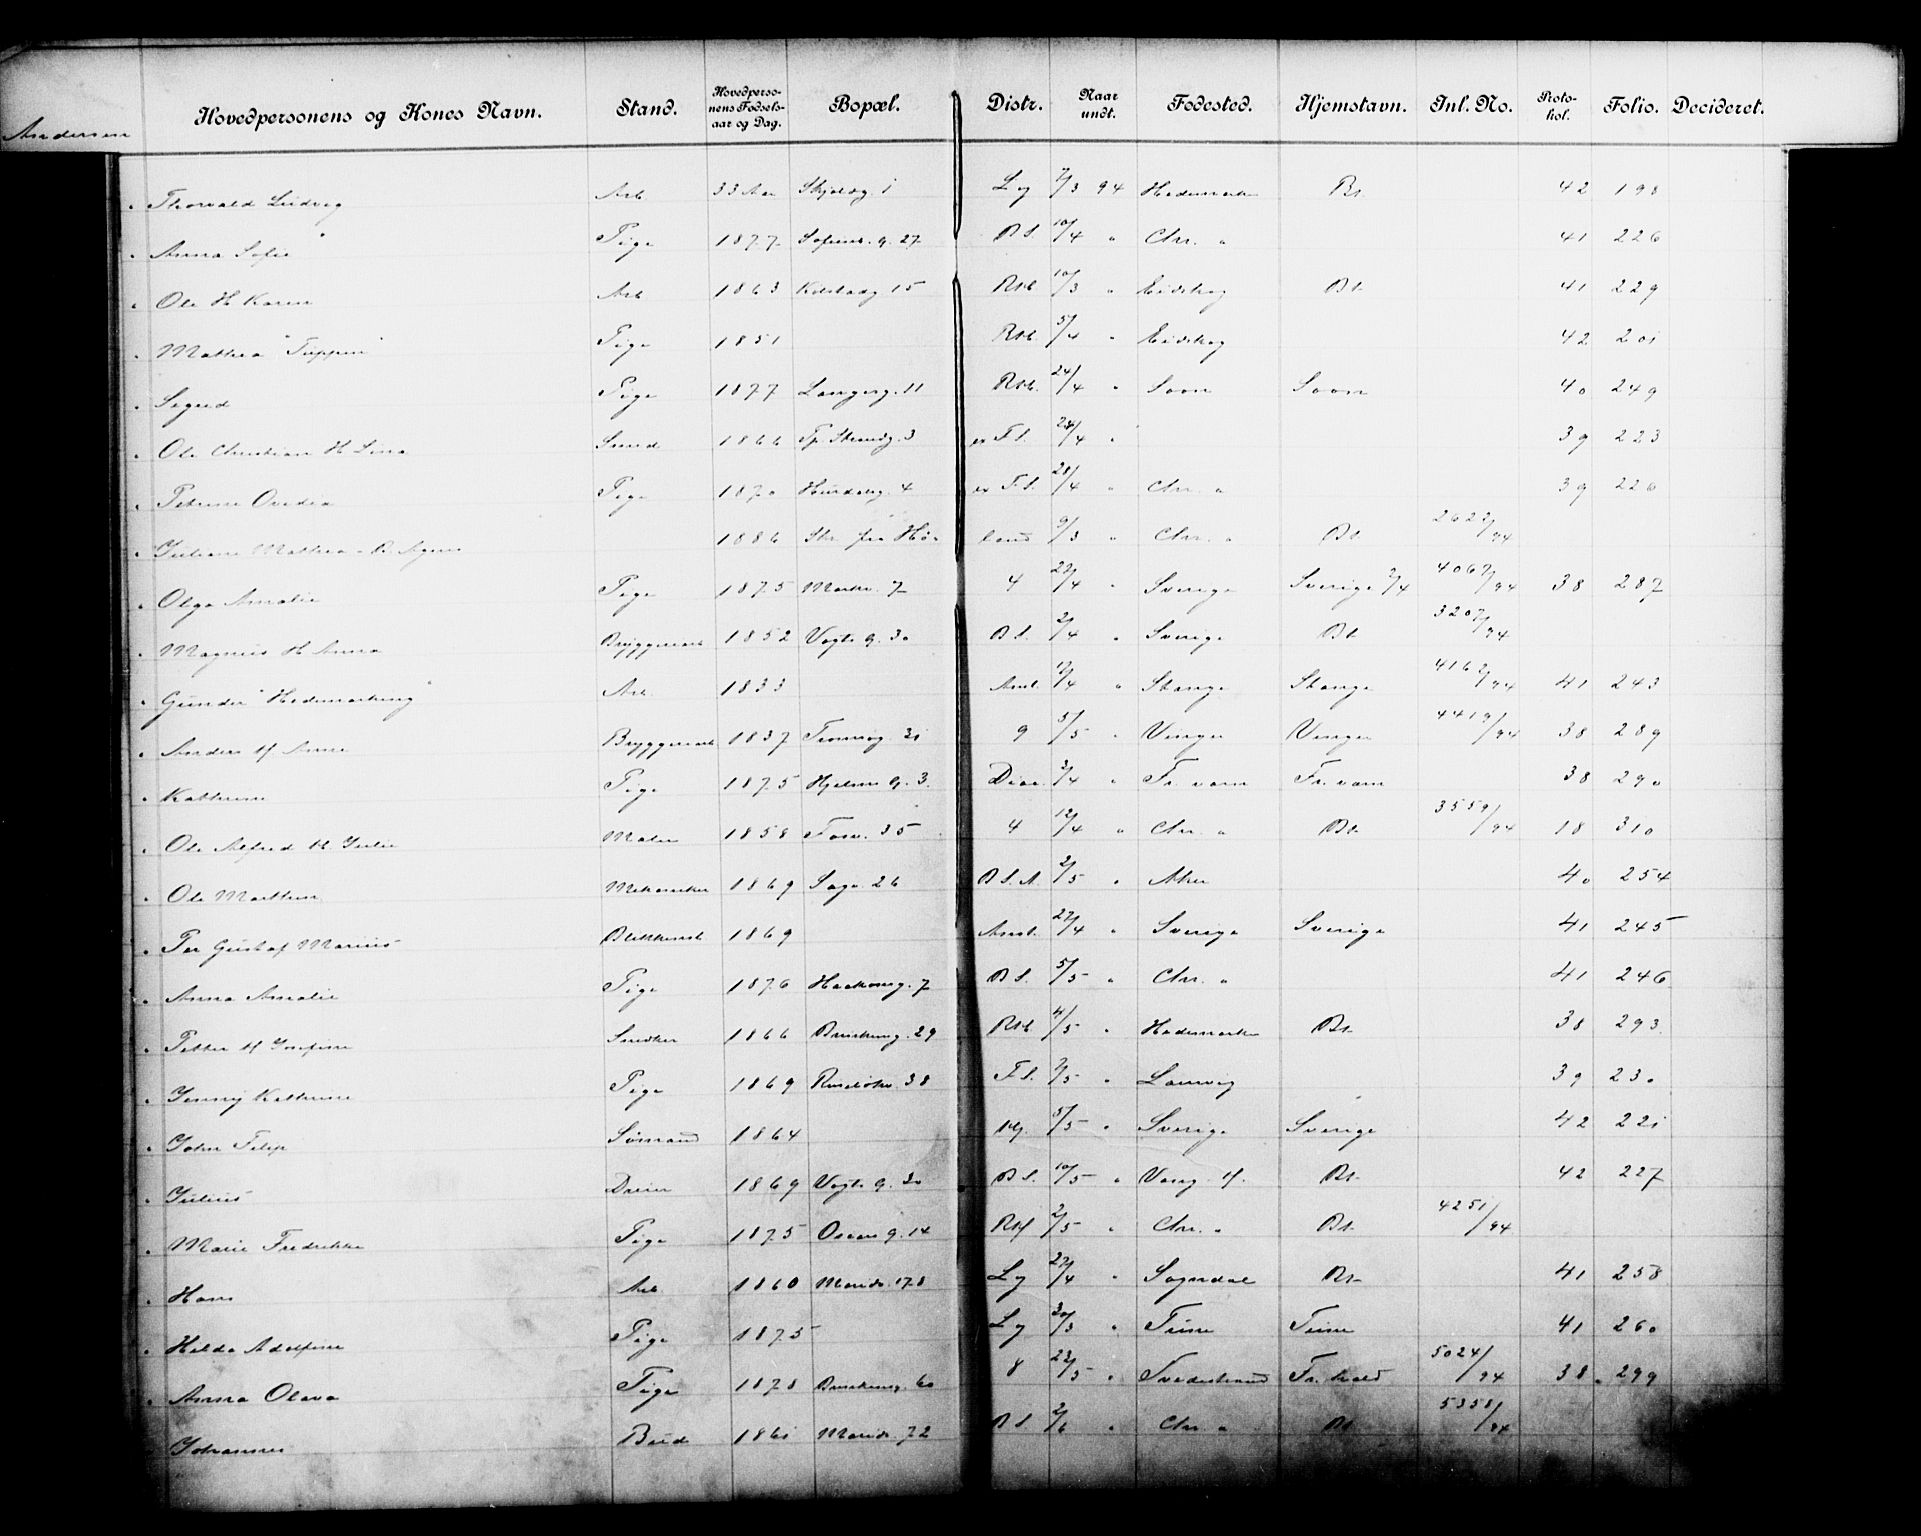 Andersen
Hovedpersonens og Kones Navn. Stand. Hovedperso-nens Fødsels-aar og Dag. Bopæl. Distr. Naar undt. Fødested. Hjemstavn. Inl. No. Proto-kol. Folio. Decideret.
" Thorvald Ludvig Arb 33 Aar 1 Lg 94 Hedemarken Bt. 42 198
" Anna Sofie Pige 1877 Sofienb. g. 27 B S. 10/4 " Chr. " 41 226
" Ole H Karen Arb 1863 15 10/3 " Eidskog Bt. 41 229
" Mathea "Tuppen" Pige 1851 5/4 " Eidskog 42 201
" Sigrid Pige 1877 Langesg. 11 24/4 " Soon Soon 40 249
" Ole Christian H Lina Smed 1866 Tp. Strandg. 3 F S. 24/4 " 39 223
" Petrine Ovedia Pige 1870 Hurdalsg. 4 F. S. 28/4 " Chr. " 39 226
" Juliane Mathea - B. Agnes 1886 9/3 " Chr. " Bt. /94
" Olga Amalie Pige 1875 Markv. 7 4 /4 " Sverige Sverige 2/4 /94 38 287
" Magnus H Anna Bryggeriarb 1852 Vogts g. 30 B S. 2/4 " Sverige Bt. 3207/94
" Gunder "Hedemarking" Arb. 1833 Amb. /4 " Stange Stange /94 41 243
" Anders H. Anne Bryggeriarb 1837 Tromsøg. 31 9 5/5 " Vinger Vinger 4419/94 38 289
" Kathrine Pige 1875 Hjelms g. 3. /4 " Fr. værn Fr. værn 38 290
" Ole Alfred H Julie Maler 1858 Fosv. 35 4 12/4 " Chr. " Bt. 3559/94 18 310
" Ole Marthin Mekaniker 1869 Sagv. 26 B S. A. 2/5 " Aker 40 254
" Per Gustaf Marius Blikkensl. 1869 Amb. 27/4 " Sverige Sverige 41 245
" Anna Amalie Pige 1876 Haakonsg. 7 B S. 5/5 " Chr. " 41 246
" Petter H Josefine Snedker 1866 Brinkeng. 29 4/5 " Hedemarken Bt. 38 293
" Jenny Kathrine Pige 1869 Ruseløkv. 38 F S. /5 " Laurvig 39 230
" John Filip Sømand 1864 5/5 " Sverige Sverige 42 221
" Julius Dreier 1869 Vogts g. 30 B S. 10/5 " Vang H. Bt. 42 227
" Marie Fredrikke Pige 1875 Oscars g. 14 2/5 " Chr. " Bt. 4251/94
" Hans Arb. 1860 Marid. 178 Lg 27/4 " Sogndal Bt. 41 258
" Hilda Adolfine Pige 1875 Lg 30/3 " Tune Tune 41 260
" Anna Olava Pige 1878 Brinkeng. 60 8 " Tvedestrand Fr. hald 5024/94 38 " 299
" Johannes Bud 1861 Marid. 72 B S. 2/6 " Chr. " Bt. 5358/94